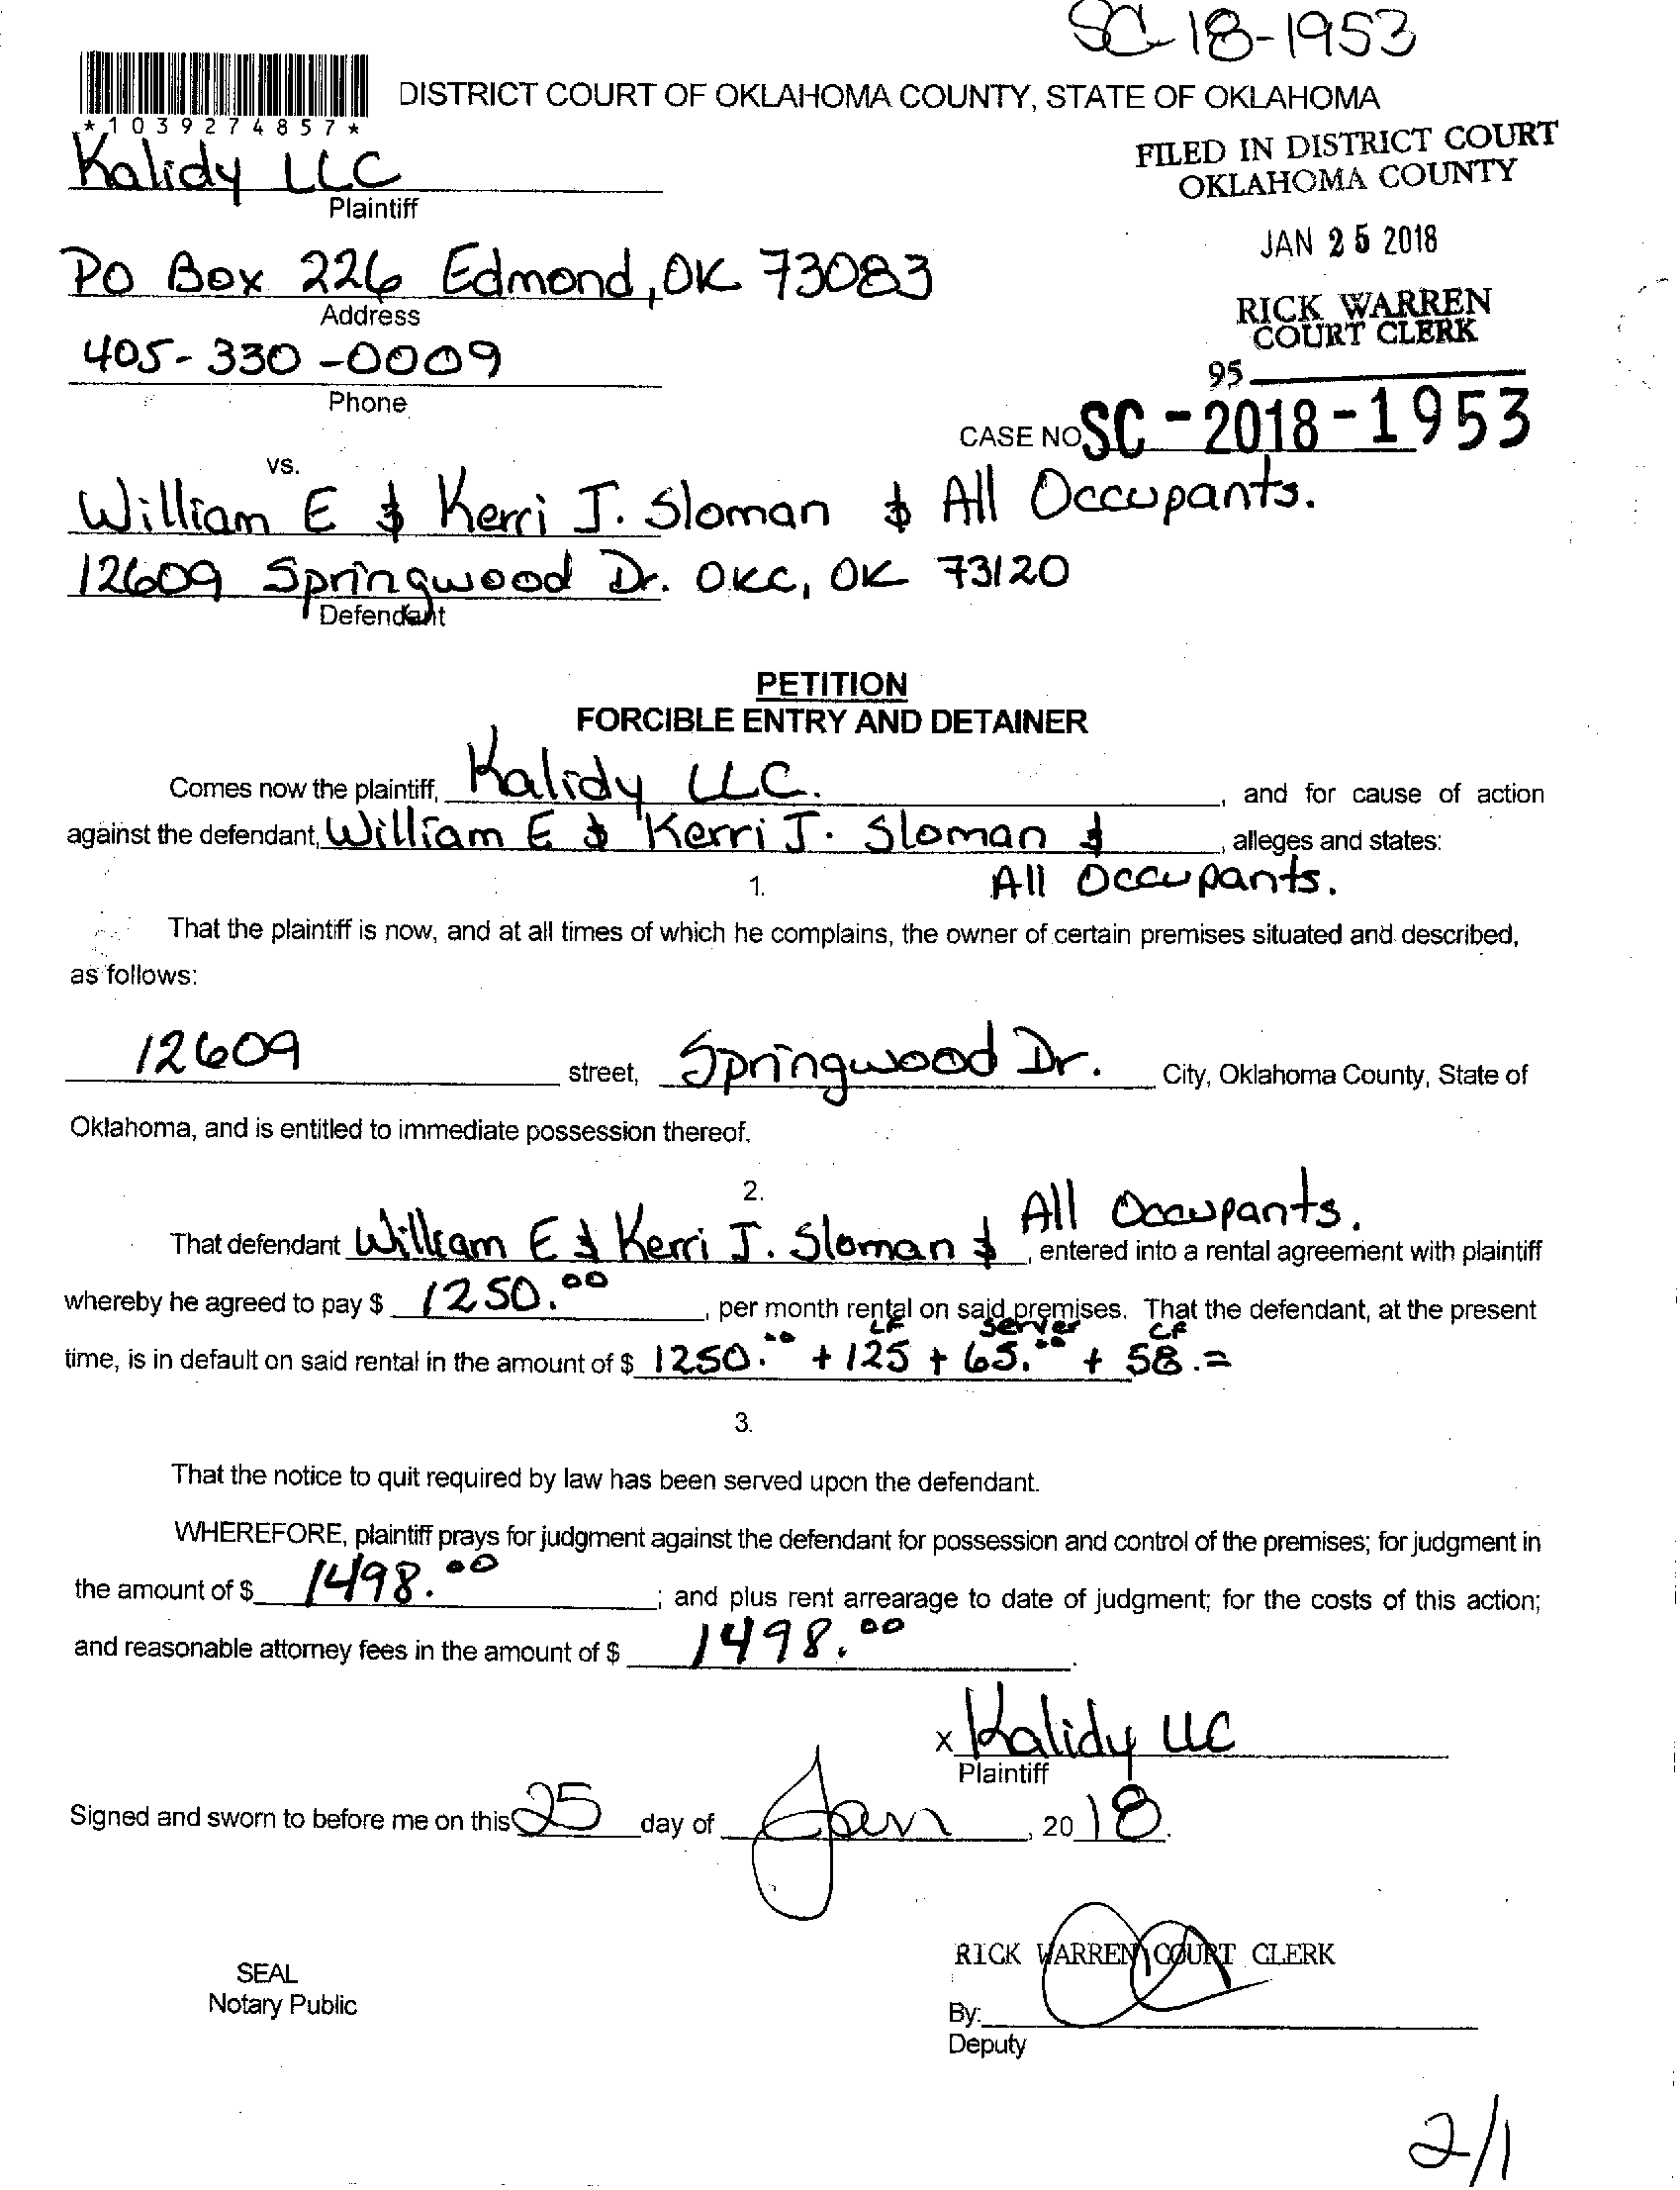 SC-18-1953
DISTRICT COURT OF OKLAHOMA COUNTY, STATE OF OKLAHOMA
*1039274857*
FILED IN DISTRICT COURT
OKLAHOMA COUNTY
Kalidy LLC
Plaintiff
JAN 25 2018
PO Box 226 Edmond, OK 73083
Address
RICK WARREN
COURT CLERK
405-330-0009
Phone
95
CASE NO SC-2018-1953
vs.
William E & Kerri J. Sloman & All Occupants.
12609 Springwood Dr. OKC, OK 73120
Defendant
PETITION
FORCIBLE ENTRY AND DETAINER
Comes now the plaintiff, Kalidy LLC. , and for cause of action
against the defendant, William E & Kerri J. Sloman & , alleges and states:
All Occupants.
1.
That the plaintiff is now, and at all times of which he complains, the owner of certain premises situated and described,
as follows:
12609 street, Springwood Dr. City, Oklahoma County, State of
Oklahoma, and is entitled to immediate possession thereof.
2.
All Occupants.
That defendant William E & Kerri J. Sloman & , entered into a rental agreement with plaintiff
whereby he agreed to pay $ 1250.00 , per month rental on said premises. That the defendant, at the present
LF server CF
time, is in default on said rental in the amount of $ 1250.00 + 125 + 65.00 + 58.=
3.
That the notice to quit required by law has been served upon the defendant.
WHEREFORE, plaintiff prays for judgment against the defendant for possession and control of the premises; for judgment in
the amount of $ 1498.00 ; and plus rent arrearage to date of judgment; for the costs of this action;
and reasonable attorney fees in the amount of $ 1498.00 .
x Kalidy LLC
Plaintiff
Signed and sworn to before me on this 25 day of Jan , 2018.
RICK WARREN COURT CLERK
SEAL
Notary Public
By:
Deputy
2/1